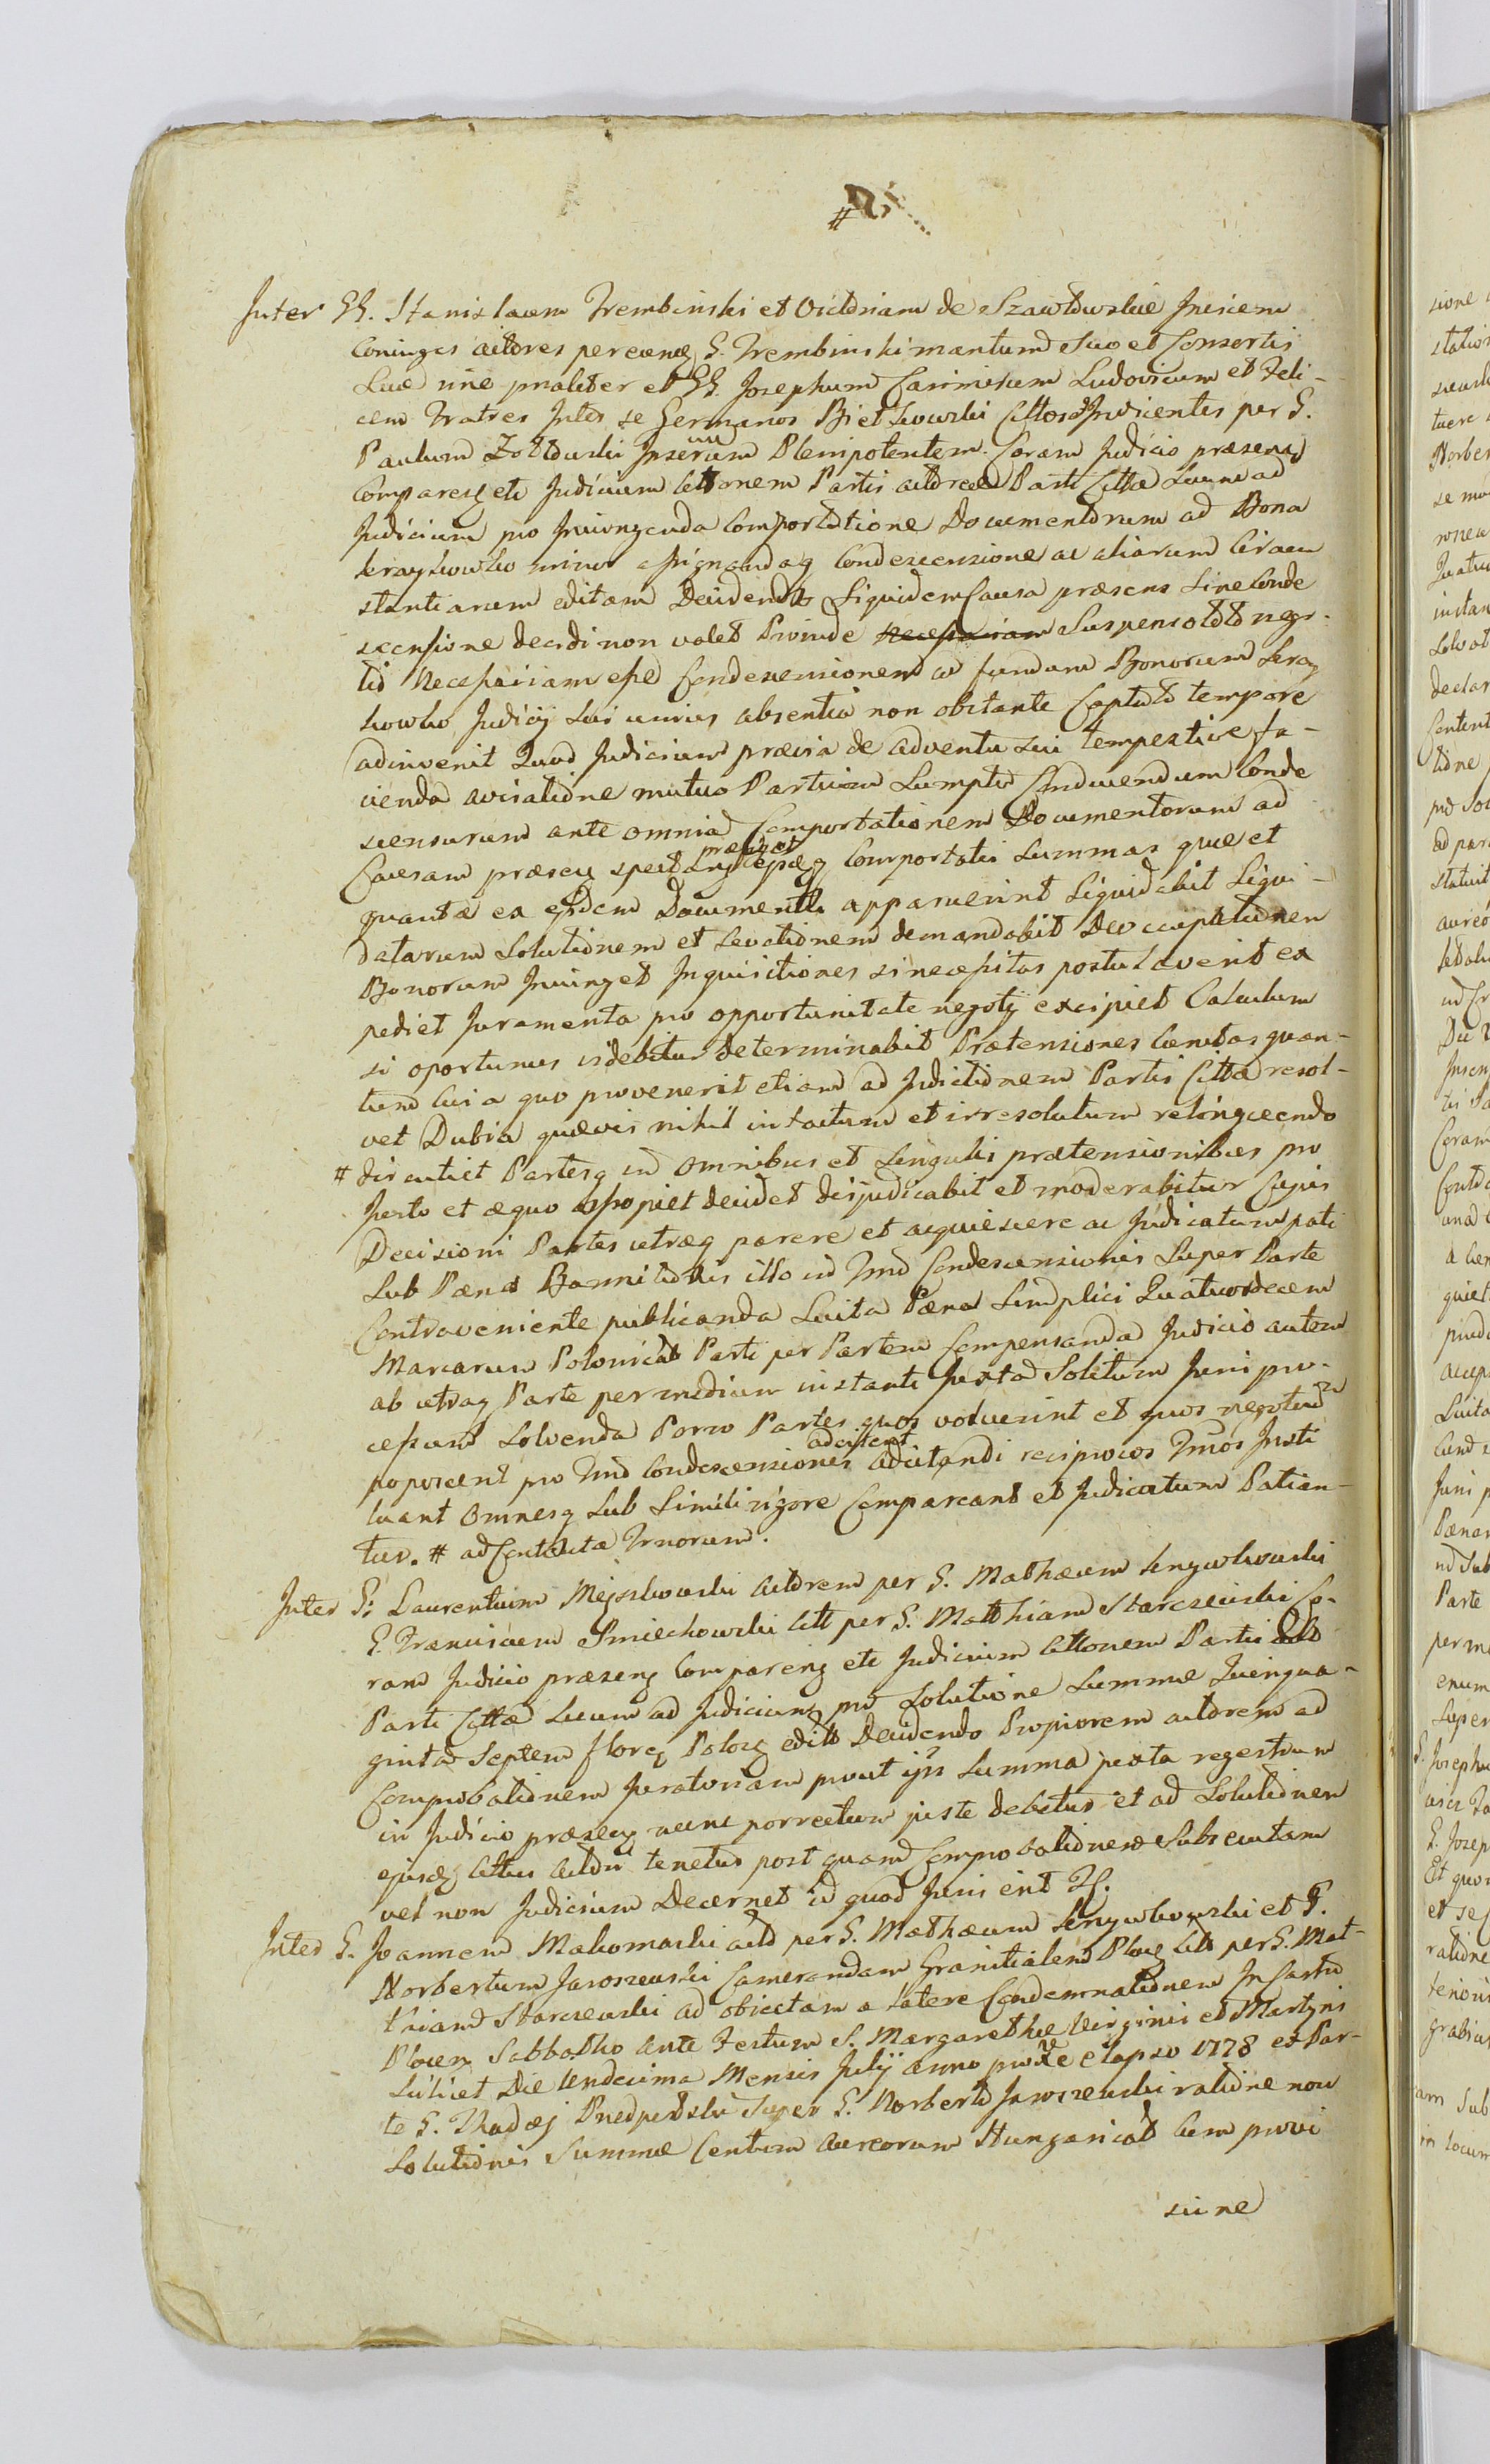 #
Inter GG. Stanislaum Trembinski et Victoriam de Szawłowskie Invicem
Coniuges actores per eundem G. Trembinski maritum Suo et Consortis
Suæ nne pnaliter et GG. Josephum Casimirum Ludovicum et Feli-
cem Fratres Inter se Germanos Bietkowski Cittos Indicentes per G.
Paulum Zołtowski Plenipotentem. Coram Judicio præsenq
Comparenq etc Judicium Cittonem Partis actoreæ Parti Cittæ Suum ad
Judicium pro Iniungenda Comportatione Documentorum ad Bona
assignandaq Condescensione ac aliarum Circum
stantiarum editam Decidendo Siquidem Causa præsens Sine Conde
scensione decidi non valet Proinde necessariam Suspenso
necessariam esse Condescensionem ad fundum Bonorum
Judicij Sui unius absentia non obstante Captato tempore
adinvenit Quod Judicium prævia de adventu sui tempestive fa-
cienda avisatione mutuo Partium Sumptu Conducendum Conde
scensurum ante omnia Comportationem Documentorum ad
Causam præsenq spect præcipiet Comportatis Summas quæ et
quantæ ex ejsdem Documentis apparuerint Liquidabit Liqui-
datarum Solutionem et Levationem demandabit Deoccupationem
Bonorum Iniunget Inquisitiones si necessitas postulaverit ex
pediet Juramenta pro opportunitate negotij excipiet Calculum
si oportunus videbitur determinabit Prætensiones
cui a quo provenerit etiam ad Indictionem Partis Cittæ resol-
vet Dubia quævis nihil intactum et irresolutum relinquendo
# discutiet Partesq in omnibus et Singulis prætensionibus pro
Justo et æquo decidet dijudicabit et moderabitur Cujus
Decisioni Partes utræq parere et acquiescere ac Judicatum pati
Sub Pæna Bannitionis illo in Tmno Condescensionis Super Parte
Contraveniente publicanda Luita Pæna Simplici Quatuordecem
Marcarum Polonical Parti per Partem Compensanda Judicio autem
ab utraq Parte per medium instanti Juxta Solitum Juris pro-
cessum Solvenda Porro Partes quos voluerint et quos negotium
poposcerit pro Tmno Condescensionis adcitent adcitandi reciprocos Tmnos Insti
tuant Omnesq Sub Simili rigore Compareant et Judicatum Patian-
tur. # ad Contenta Tmnorum.
Inter G: Laurentium Mejszkowski actorem per G. Mathæum
G. Franciscum Smiechowski Citt per G. Matthiam Starczewski Co-
ram Judicio præsenq Comparenq etc Judicium Cittonem Partis
Parti Cittæ Suum ad Judicium pro Solutione Summæ Quinqua-
ginta Septem florq Polonq edit Decidendo Propiorem actorem ad
Comprobationem Juratoriam prout ijs Summa juxta regestrum
in Judicio præsenq nunc porrectum juste debetur et ad Solutionem
ejusdq Cittus Actori tenetur post quam Comprobationem Subsecutam
vel non Judicium Decernet id quod Juris erit
Inter G. Joannem Makomaski act per G. Mathæum et G.
Norbertum Jaroszewski Camerarium Granitialem Plocq Citt per G. Mat-
thiam Starczewski ad obiectam a latere Condemnationem In Castro
Plocen Sabbatho Ante Festum S. Margarethæ Virginis et Martyris
Scilicet Die Undecima Mensis Julij anno proxe elapso 1778 ex Par-
te G. Thadæj Super G. Norberto Jaroszewski ratione non
Solutionis Summæ Centum Aureorum Hungarical Cum provi
sione